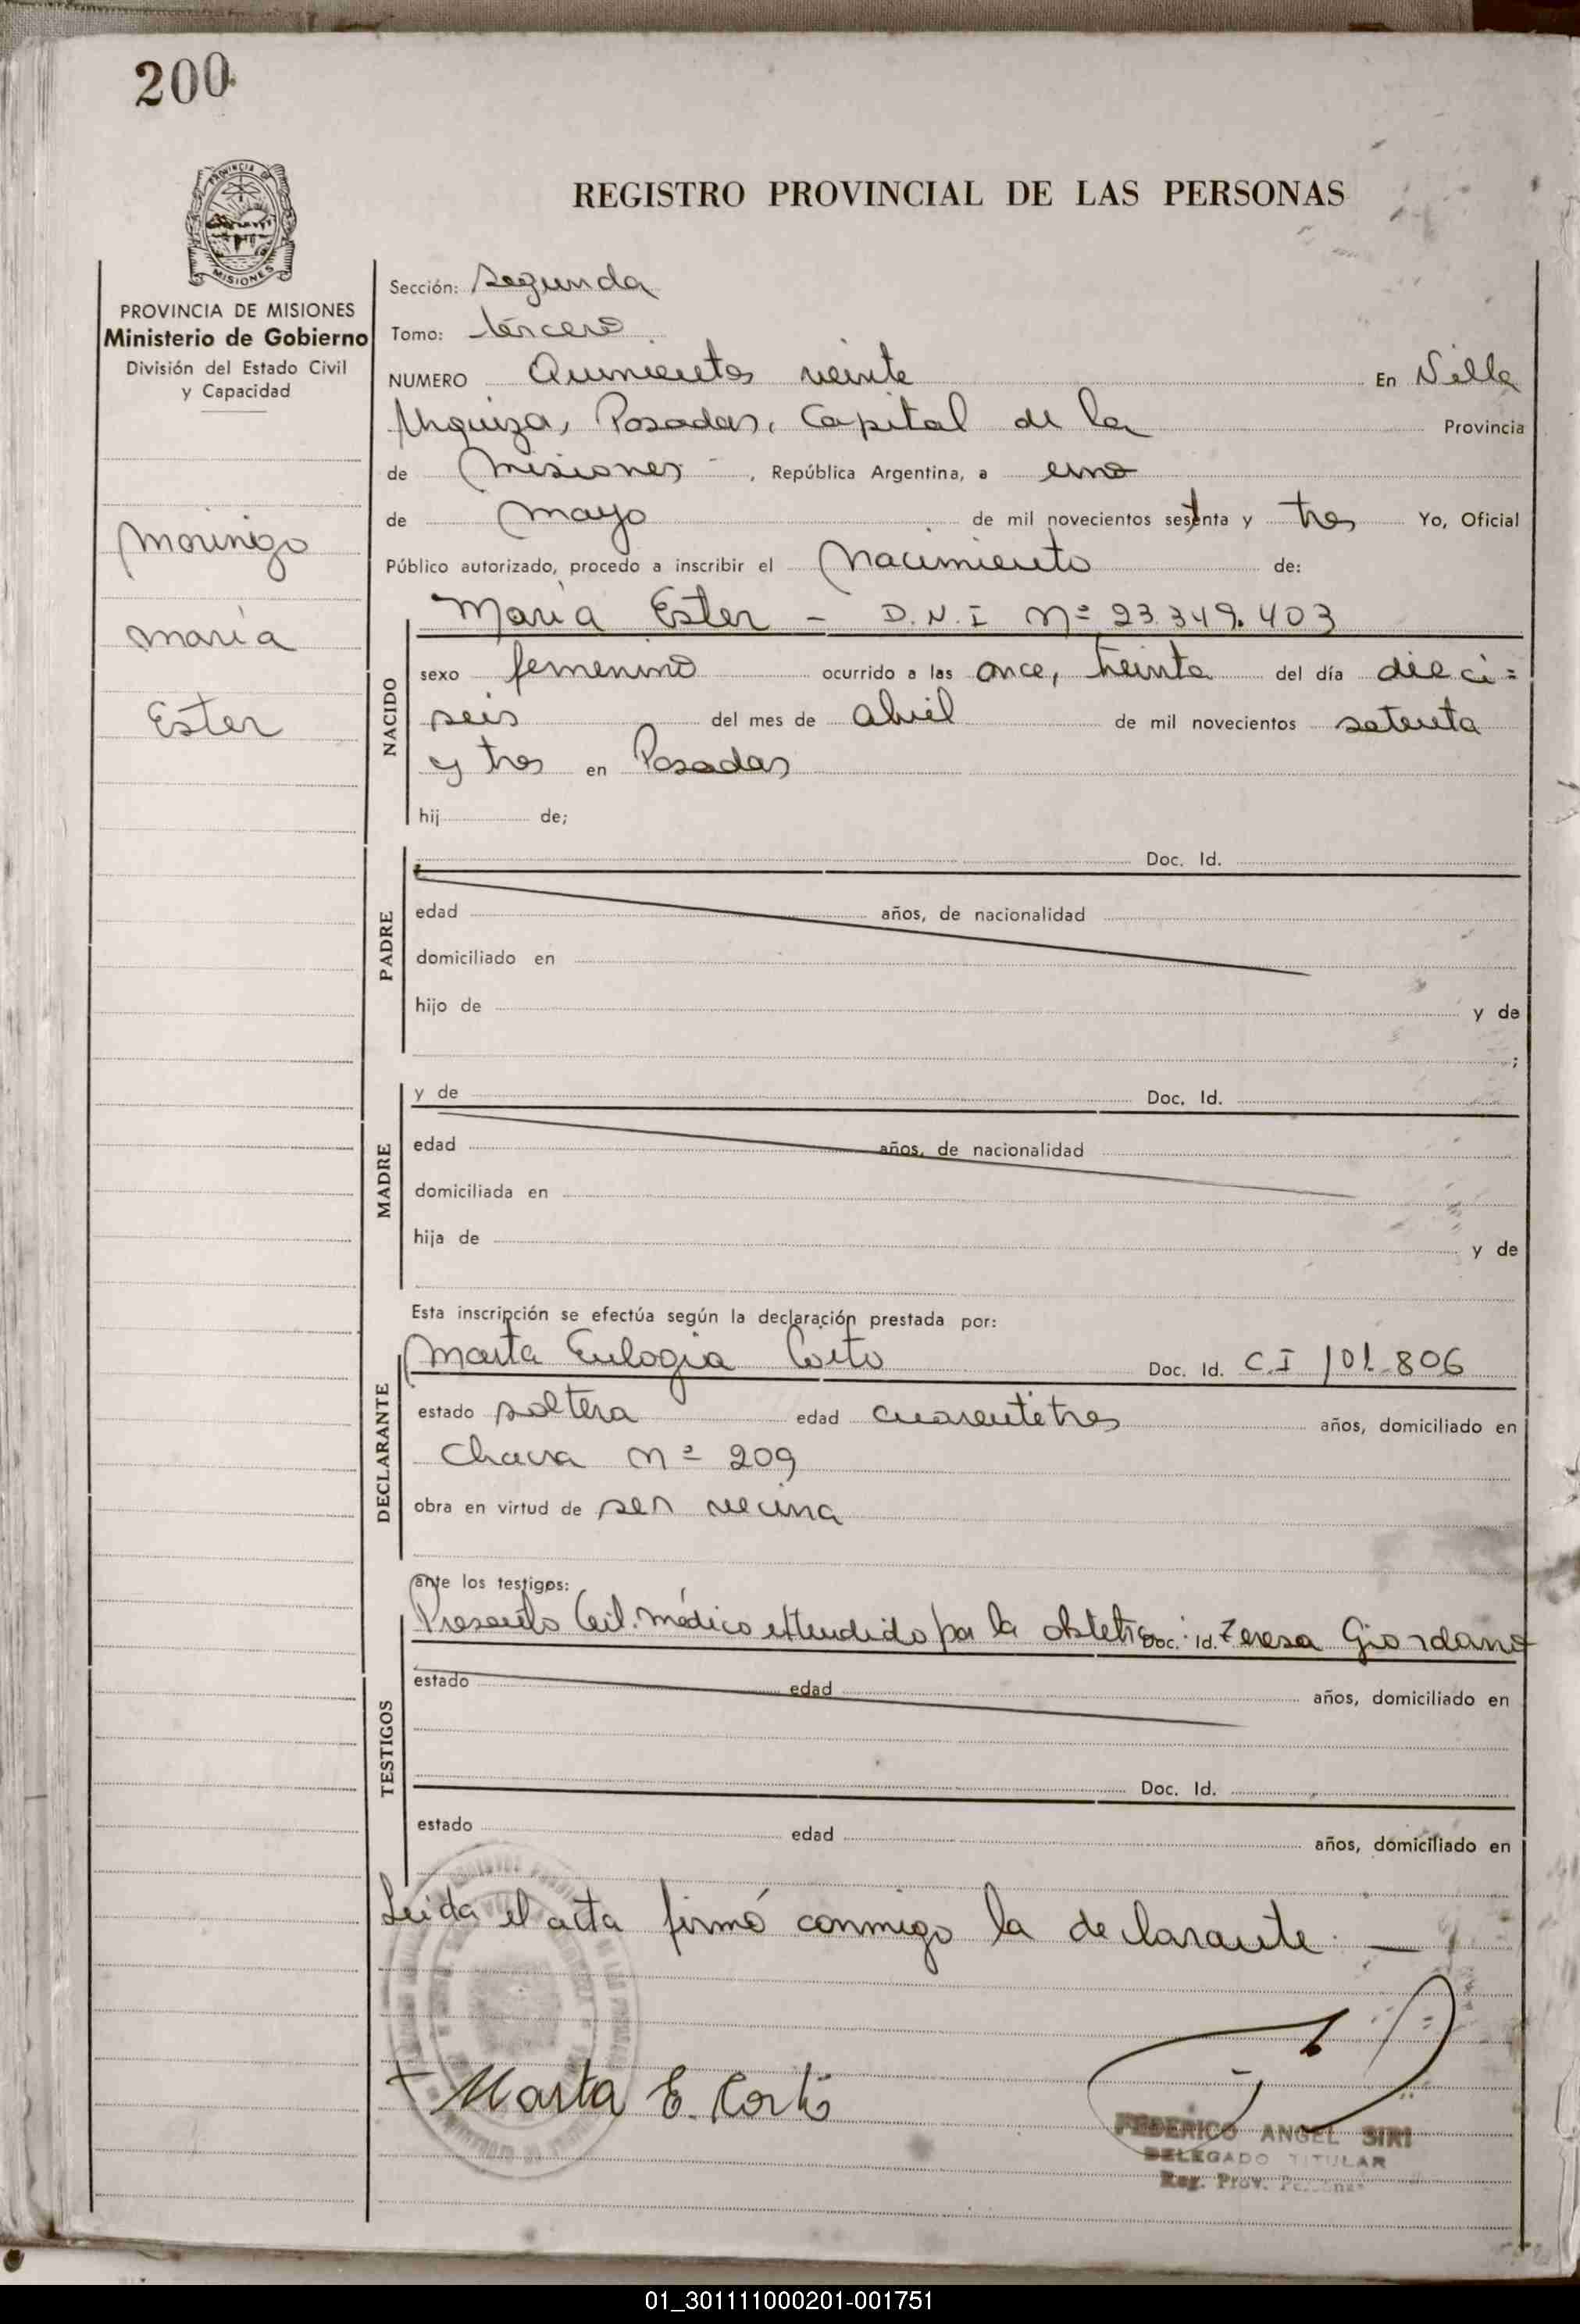 200
PROVINCIA DE MISIONES
Ministerio de Gobierno
División del Estado Civil
y Capacidad
Morinigo
María
Ester
REGISTRO PROVINCIAL DE LAS PERSONAS
Sección: Segunda
Tomo: tercero
NUMERO Quinientos veinte En Villa
Urquiza, Posadas, Capital de la Provincia
de Misiones, República Argentina, a uno
de mayo de mil novecientos setenta y tres Yo, Oficial
Público autorizado, procedo a inscribir el Nacimiento de:
María Ester - D.N.I Nº 23.349.403
NACIDO
sexo femenino ocurrido a las once, treinta del día dieci=
seis del mes de abril de mil novecientos setenta
y tres en Posadas
hij de;
PADRE
Doc. Id.
edad años, de nacionalidad
domiciliado en
hijo de y de
;
MADRE
y de Doc. Id.
edad años, de nacionalidad
domiciliada en
hija de y de
Esta inscripción se efectúa según la declaración prestada por:
DECLARANTE
Marta Eulogia Doc. Id. C.I 101.806
estado soltera edad cuarentitres años, domiciliado en
Chacra Nº 209
obra en virtud de ser vecina
ante los testigos:
TESTIGOS
Presento Cert. médico extendido por la obstetra Doc. Id. Teresa Giordano
estado edad años, domiciliado en
Doc. Id.
estado edad años, domiciliado en
Leida el acta firmó conmigo la declarante. —
Marta E.
FEDERICO ANGEL SIRI
DELEGADO TITULAR
Reg. Prov. Personas
01_301111000201-001751